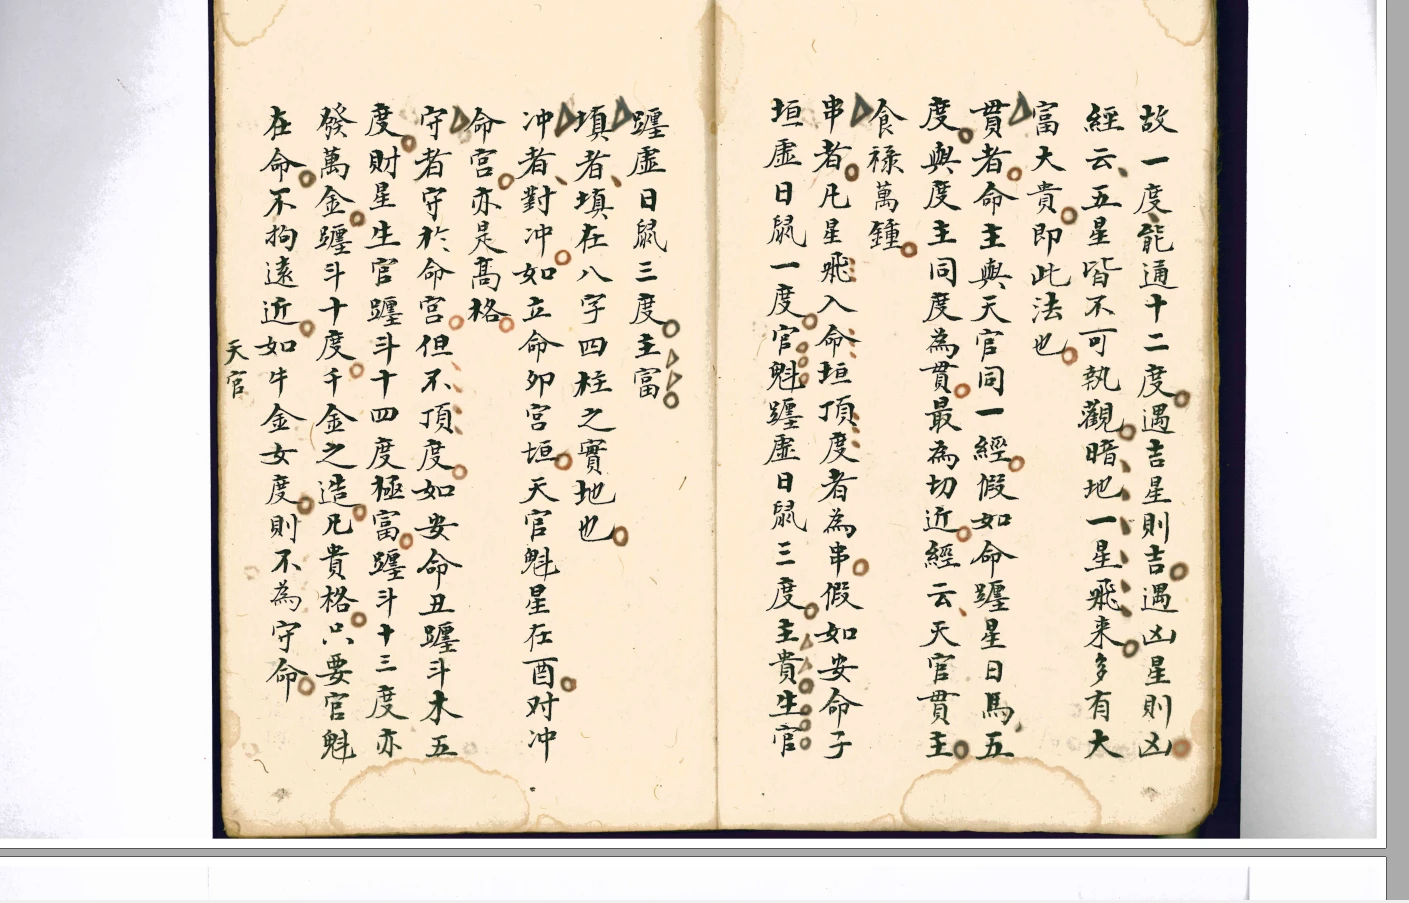 故一度能通十二度遇吉星則吉遇凶星則凶
經云五星皆不可執觀暗地一星飛来多有大
富大貴即此法也
貫者命主與天官同一經假如命躔星日馬五
度與度主同度為貫最為切近經云天官貫主
食祿萬鍾
串者凡星飛入命垣頂度者為串假如安命子
垣虛日鼠一度官魁躔虛日鼠三度主貴生官
躔虛日鼠三度主富
填者填在八字四柱之實地也
冲者對冲如立命卯宮垣天官魁星在酉对冲
命宮亦是高格
守者守於命宮但不頂度如安命丑躔斗木五
度財星生官躔斗十四度極富躔斗十三度亦
發萬金躔斗十度千金之造凡貴格只要官魁
在命不拘遠近如牛金女度則不為守命
天官